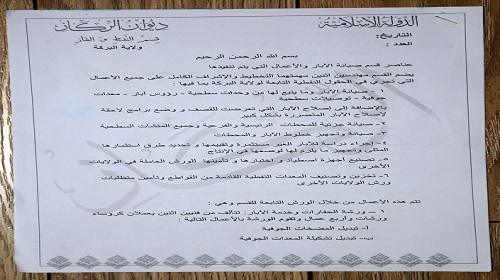 الدولة الإسلامية
ديوان الركاز
التاريخ:
قسم النفط و الغاز
العدد :
ولاية البركة
بسم الله الرحمن الرحيم
عناصر قسم صيانة الآبار والأعمال التي يتم تنفيذها
يضم القسم مهندسين اثنين مهمتهما التخطيط والإشراف الكامل على جميع الأعمال
التي تجري في الحقول النفطية التابعة لولاية البركة بما فيها
١ – صيانة الآبار وما يتبع لها من وحدات سطحية - رؤوس آبار - معدات
جوفية - توصيلات سطحية
بالإضافة إلى إصلاح الآبار التي تعرضت للقصف و وضع برامج لاحقة
لإصلاح الآبار المتضررة بشكل كبير
٢ – صيانة جزئية للمحطات الرئيسية والفرعية وجميع المنشآت السطحية
٣ – صيانة وتجهيز خطوط الآبار والمحطات
٤ – إجراء دراسة للآبار الغير مستثمرة وتقييمها و تحديد طرق استثمارها
المثلى وتجهيز ما يلزم لها لوضعها في الإنتاج
٥ – تصنيع أجهزة اصطياد و اختبارها و تأمينها للورش العاملة في الولايات
الأخرى
٦ – تخزين وتصنيف المعدات النفطية القادمة من القواطع وتأمين متطلبات
ورش الولايات الأخرى
تتم هذه الأعمال من خلال الورش التابعة للقسم وهي :
١ – ورشة الحفارات وخدمة الآبار: تتألف من فنيين اثنين يعملان كروساء
ورشات وأربع عمال وتقوم الورشة بالأعمال التالية :
أ- تبديل المضخات الجوفية
ب- تبديل تشكيلة المعدات الجوفية